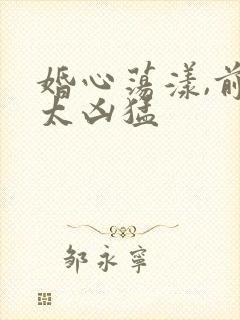 婚心荡漾,前
太凶猛
邹永宁